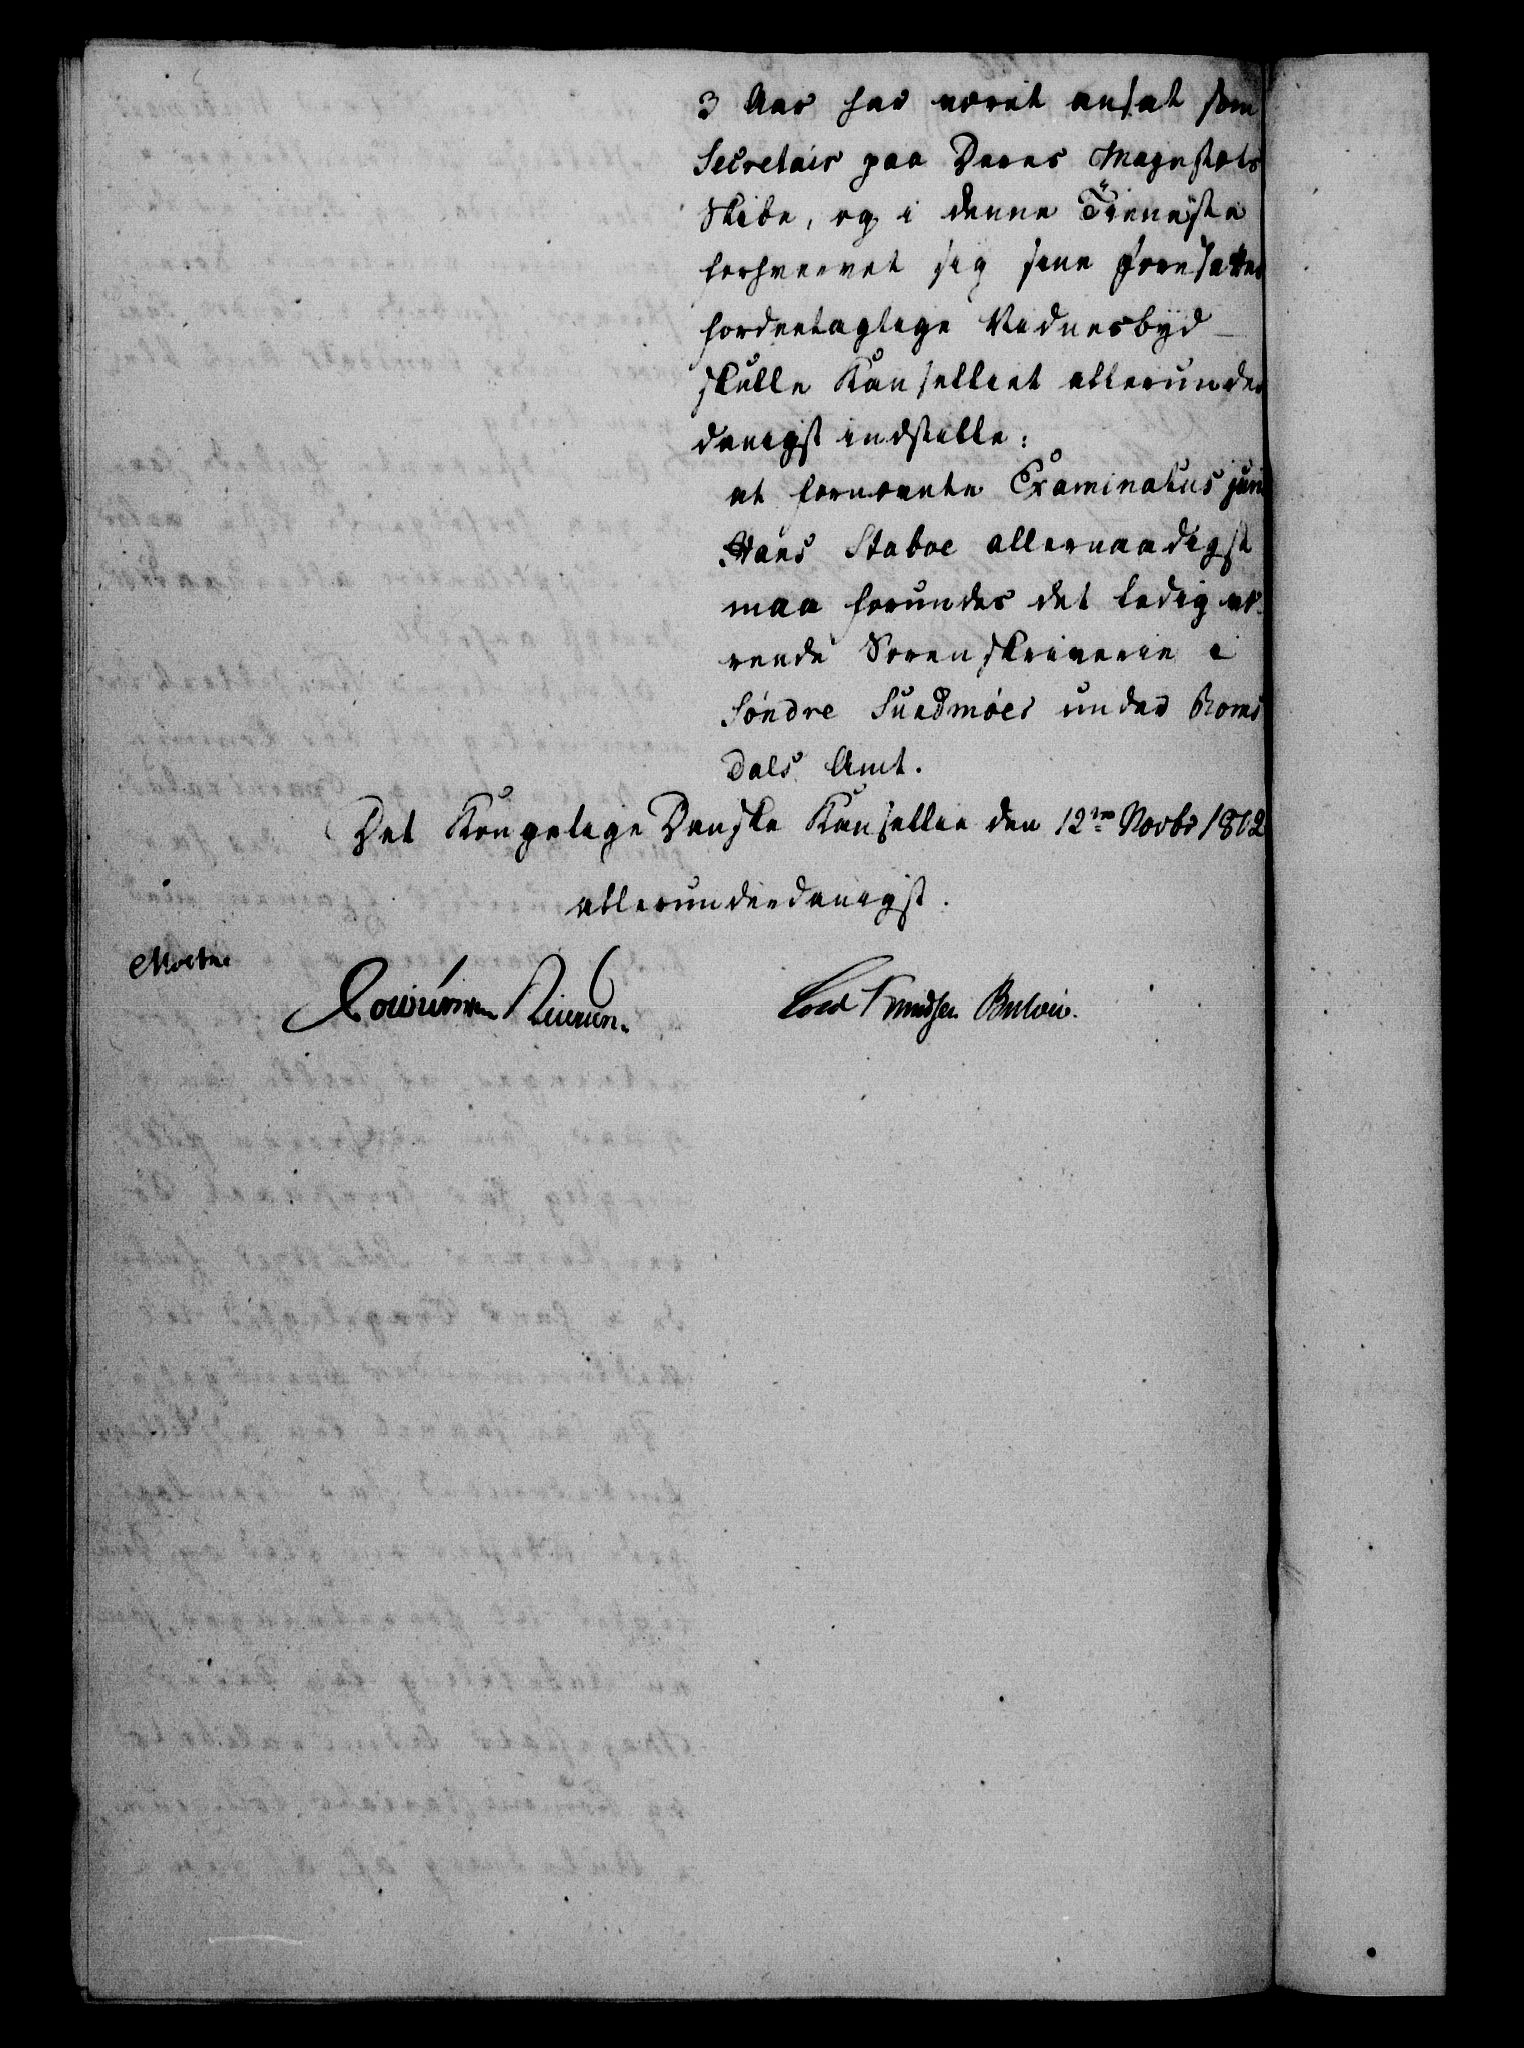 3 Aar har været ansat som
Secretair paa Deres Majestæts
Skibe, og i denne Tieneste
forhvervet sig sine Foresattes
fordeelagtige Vidnesbyrd
skulle Kanselliet allerunder
danigst indstille:
at fornævnte Examinatus juri
Hans Staboe allernaadigst
maa forundes det ledig væ
rende Sorenskriverie i
Søndre Sundmøer under Roms
dals Amt.
Det Kongelige Danske Kansellie den 12te Novbr 1812
allerunderdanigst.
Knudsen Bülow.